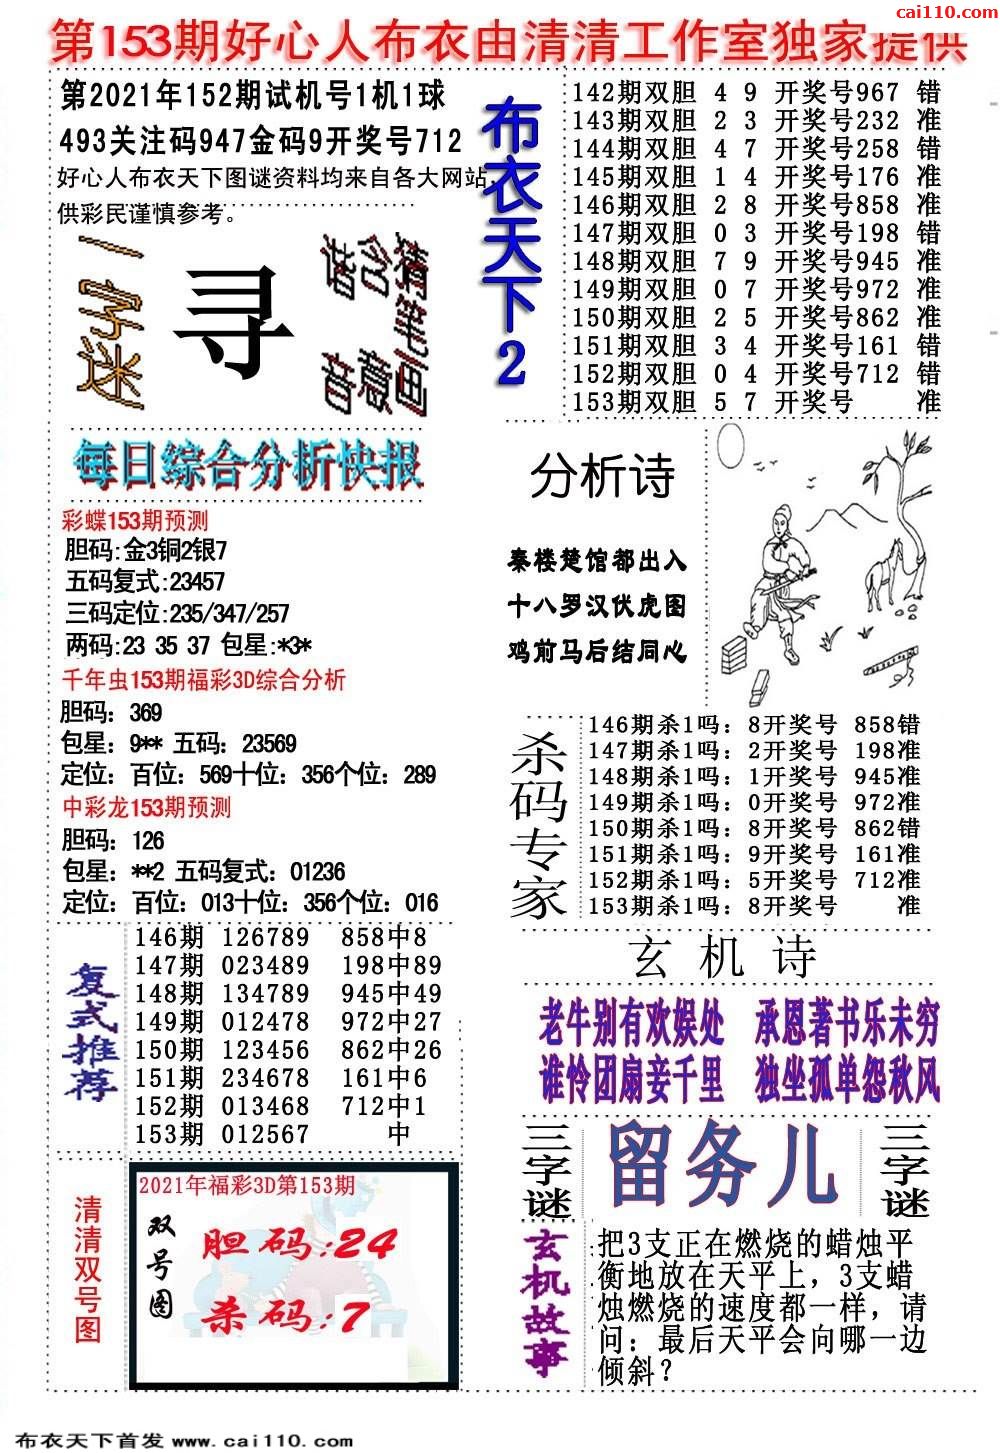 cai110.com
第153期好心人布衣由清清工作室独家提供
第2021年152期试机号1机1球
493关注码947金码9开奖号712
好心人布衣天下图谜资料均来自各大网站,
供彩民谨慎参考。
一字迷
寻
猜笔画
含意
谐音
布衣天下2
142期双胆 4 9 开奖号967 错
143期双胆 2 3 开奖号232 准
144期双胆 4 7 开奖号258 错
145期双胆 1 4 开奖号176 准
146期双胆 2 8 开奖号858 准
147期双胆 0 3 开奖号198 错
148期双胆 7 9 开奖号945 准
149期双胆 0 7 开奖号972 准
150期双胆 2 5 开奖号862 准
151期双胆 3 4 开奖号161 错
152期双胆 0 4 开奖号712 错
153期双胆 5 7 开奖号 准
每日综合分析快报
彩蝶153期预测
胆码:金3铜2银7
五码复式:23457
三码定位:235/347/257
两码:23 35 37 包星:*3*
千年虫153期福彩3D综合分析
胆码：369
包星：9** 五码：23569
定位：百位：569十位：356个位：289
中彩龙153期预测
胆码：126
包星：**2 五码复式：01236
定位：百位：013十位：356个位：016
分析诗
秦楼楚馆都出入
十八罗汉伏虎图
鸡前马后结同心
杀码专家
146期杀1吗：8开奖号 858错
147期杀1吗：2开奖号 198准
148期杀1吗：1开奖号 945准
149期杀1吗：0开奖号 972准
150期杀1吗：8开奖号 862错
151期杀1吗：9开奖号 161准
152期杀1吗：5开奖号 712准
153期杀1吗：8开奖号 准
复式推荐
146期 126789 858中8
147期 023489 198中89
148期 134789 945中49
149期 012478 972中27
150期 123456 862中26
151期 234678 161中6
152期 013468 712中1
153期 012567 中
玄机诗
老牛别有欢娱处 承恩著书乐未穷
谁怜团扇妾千里 独坐孤单怨秋风
三字谜
留务儿
三字谜
清清双号图
2021年福彩3D第153期
双号图
胆码:24
杀码:7
玄机故事
把3支正在燃烧的蜡烛平
衡地放在天平上，3支蜡
烛燃烧的速度都一样，请
问：最后天平会向哪一边
倾斜？
布衣天下首发 www.cai110.com